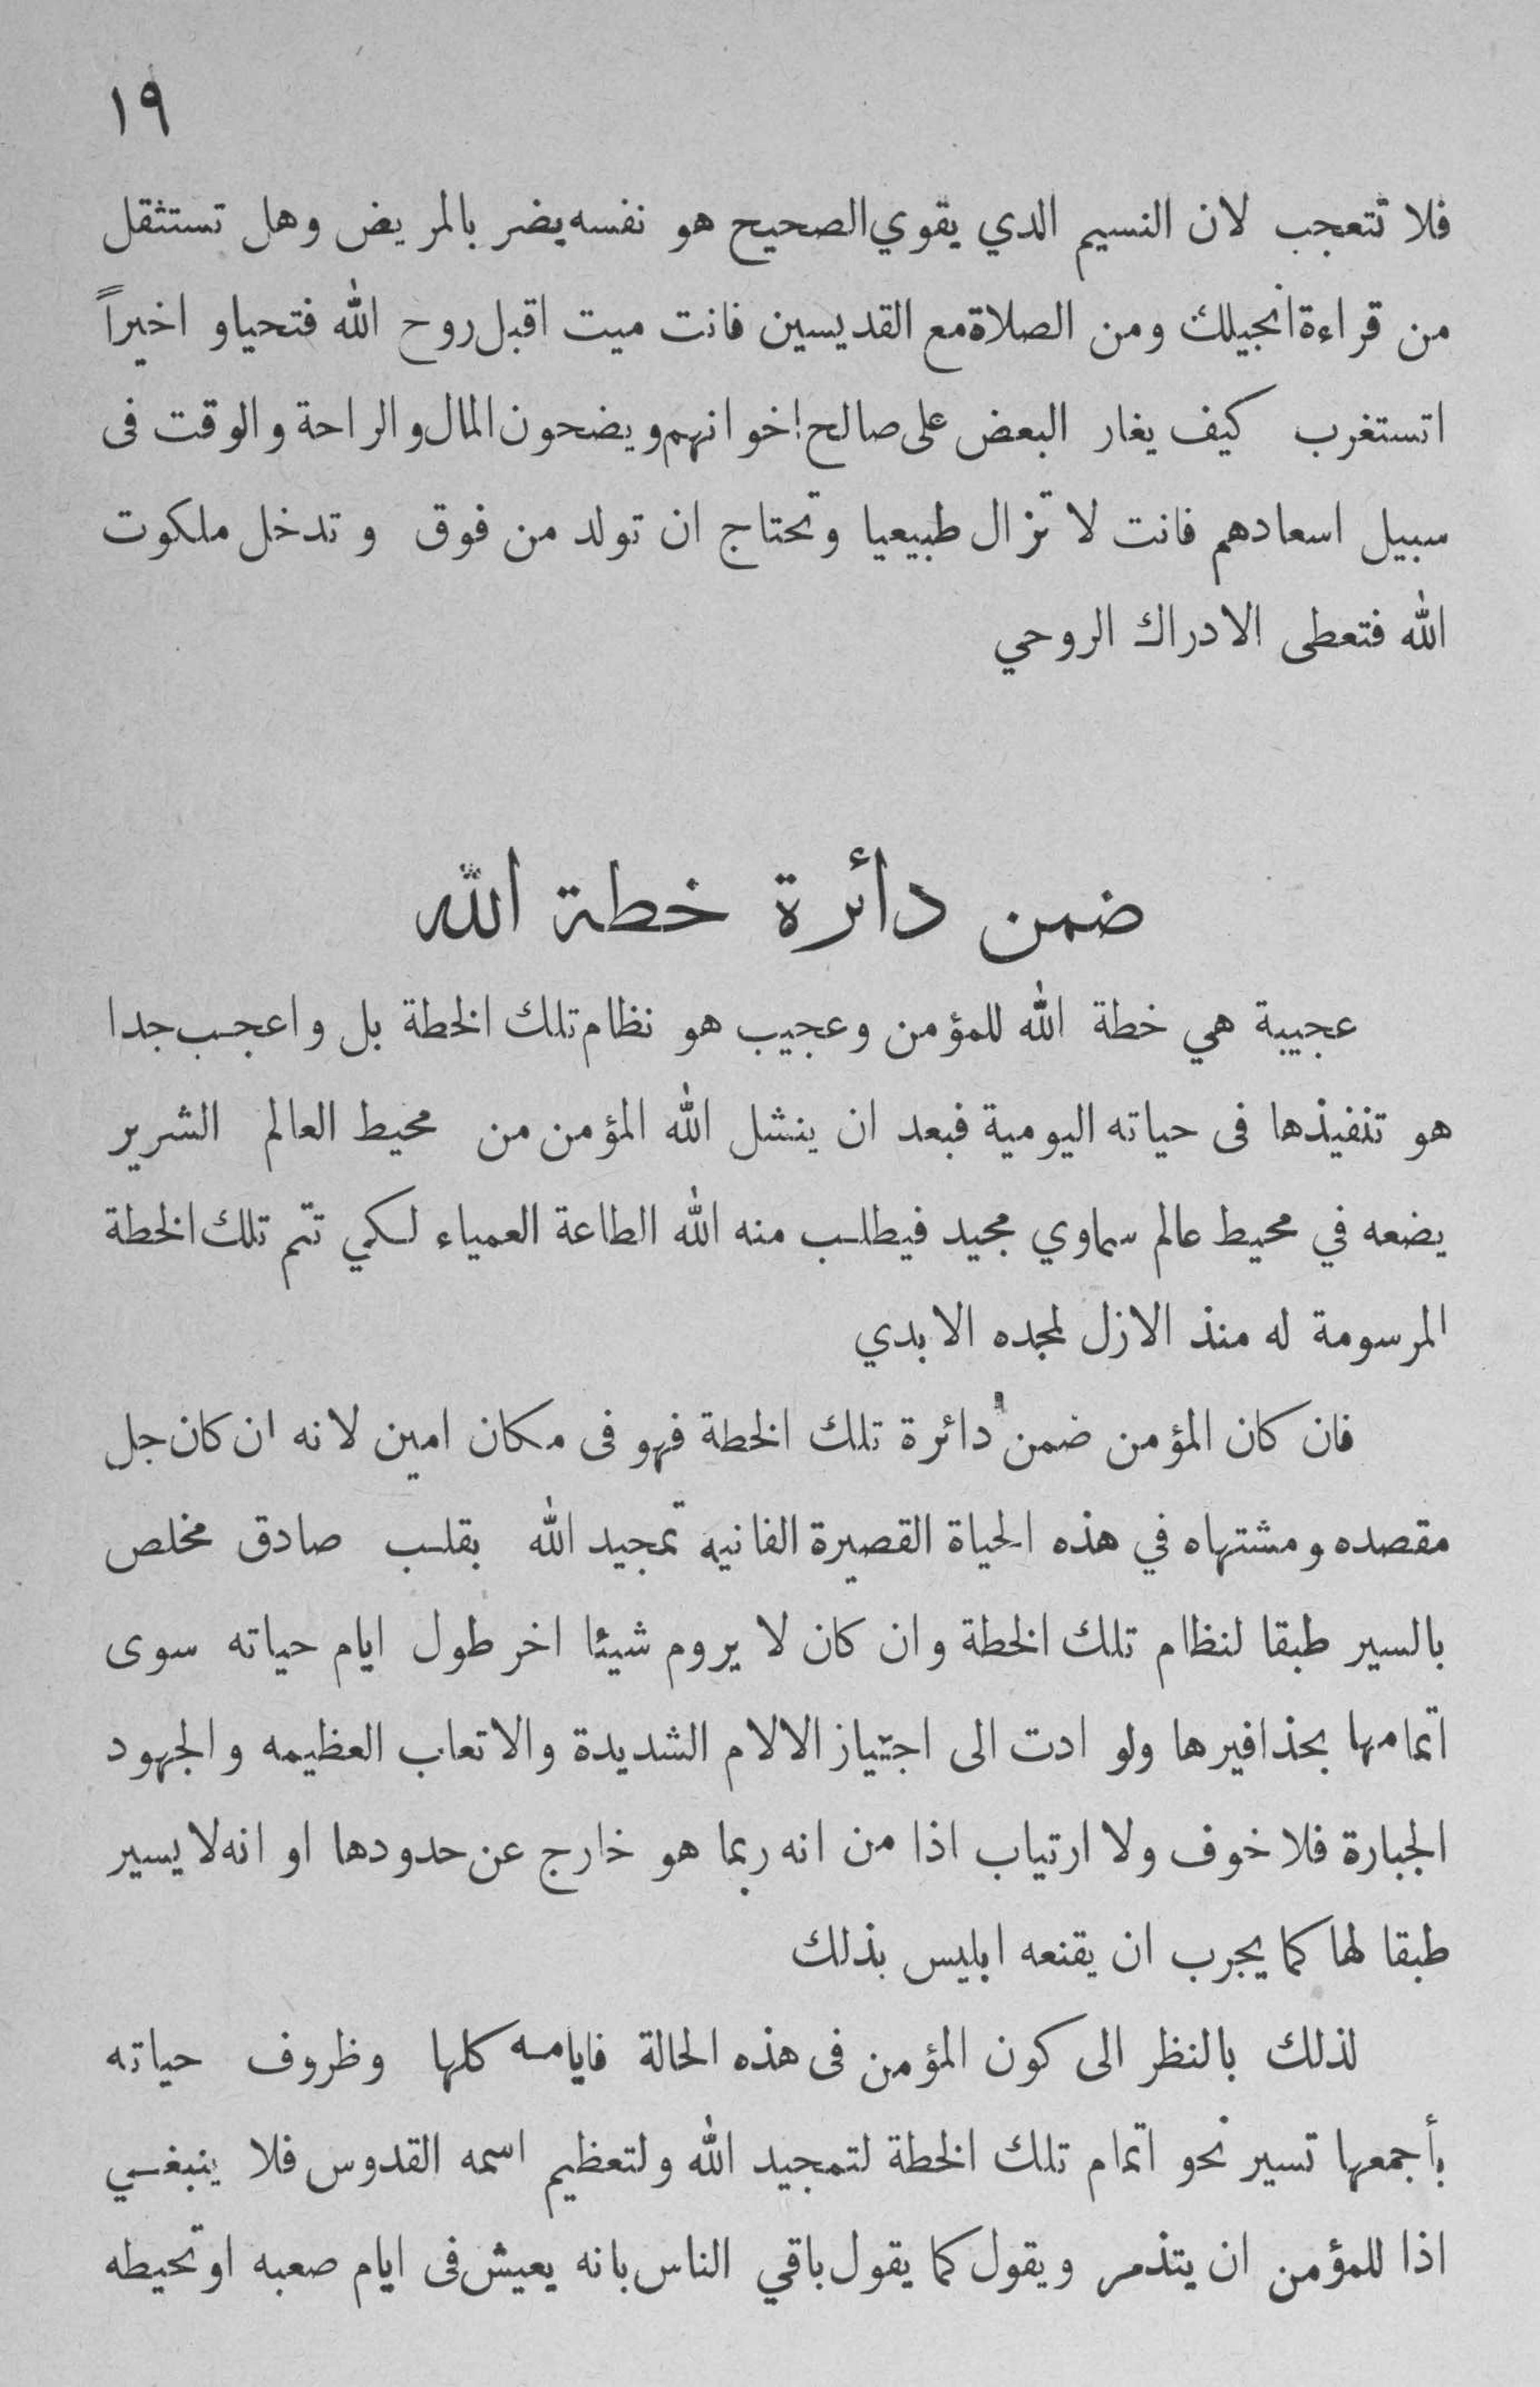 ١٩
فلا تتعجب لان النسيم الدي يقوي الصحيح هو نفسه يضر بالمريض وهل تستثقل
من قراءة انجيلك ومن الصلاة مع القديسين فانت ميت اقبل روح الله فتحيا و اخيراً
اتستغرب كيف يغار البعض على صالح إخوانهم ويضحون المال والراحة والوقت فى
سبيل اسعادهم فانت لا تزال طبيعيا وتحتاج ان تولد من فوق وتدخل ملكوت
الله فتعطى الادراك الروحي
ضمن دأئرة خطة الله
عجيبة هي خطة الله للمؤمن وعجيب هو نظام تلك الخطة بل واعجب جدا
هو تنفيذها فى حياته اليومية فبعد ان ينشل الله المؤمن من محيط العالم الشرير
يضعه في محيط عالم سماوي مجيد فيطلب منه الله الطاعة العمياء لكي تتم تلك الخطة
المرسومة له منذ الازل لمجده الابدي
فان كان المؤمن ضمن دائرة تلك الخطة فهو فى مكان امين لانه ان كان جل
مقصده ومشتهاه في هذه الحياة القصيرة الفانيه تمجيد الله بقلب صادق مخلص
بالسير طبقا لنظام تلك الخطة وان كان لا يروم شيئا اخر طول ايام حياته سوى
اتمامها بحذافيرها ولو ادت الى اجتياز الالام الشديدة والاتعاب العظيمه والجهود
الجبارة فلا خوف ولا ارتياب اذا من انه ربما هو خارج عن حدودها او انه لا يسير
طبقا لها كما يجرب ان يقنعه ابليس بذلك
لذلك بالنظر الى كون المؤمن فى هذه الحالة فايامه كلها وظروف حياته
بأجمعها تسير نحو اتمام تلك الخطة لتمجيد الله ولتعظيم اسمه القدوس فلا ينبغي
اذا للمؤمن ان يتذمر ويقول كما يقول باقي الناس بانه يعيش فى ايام صعبه اوتحيطه